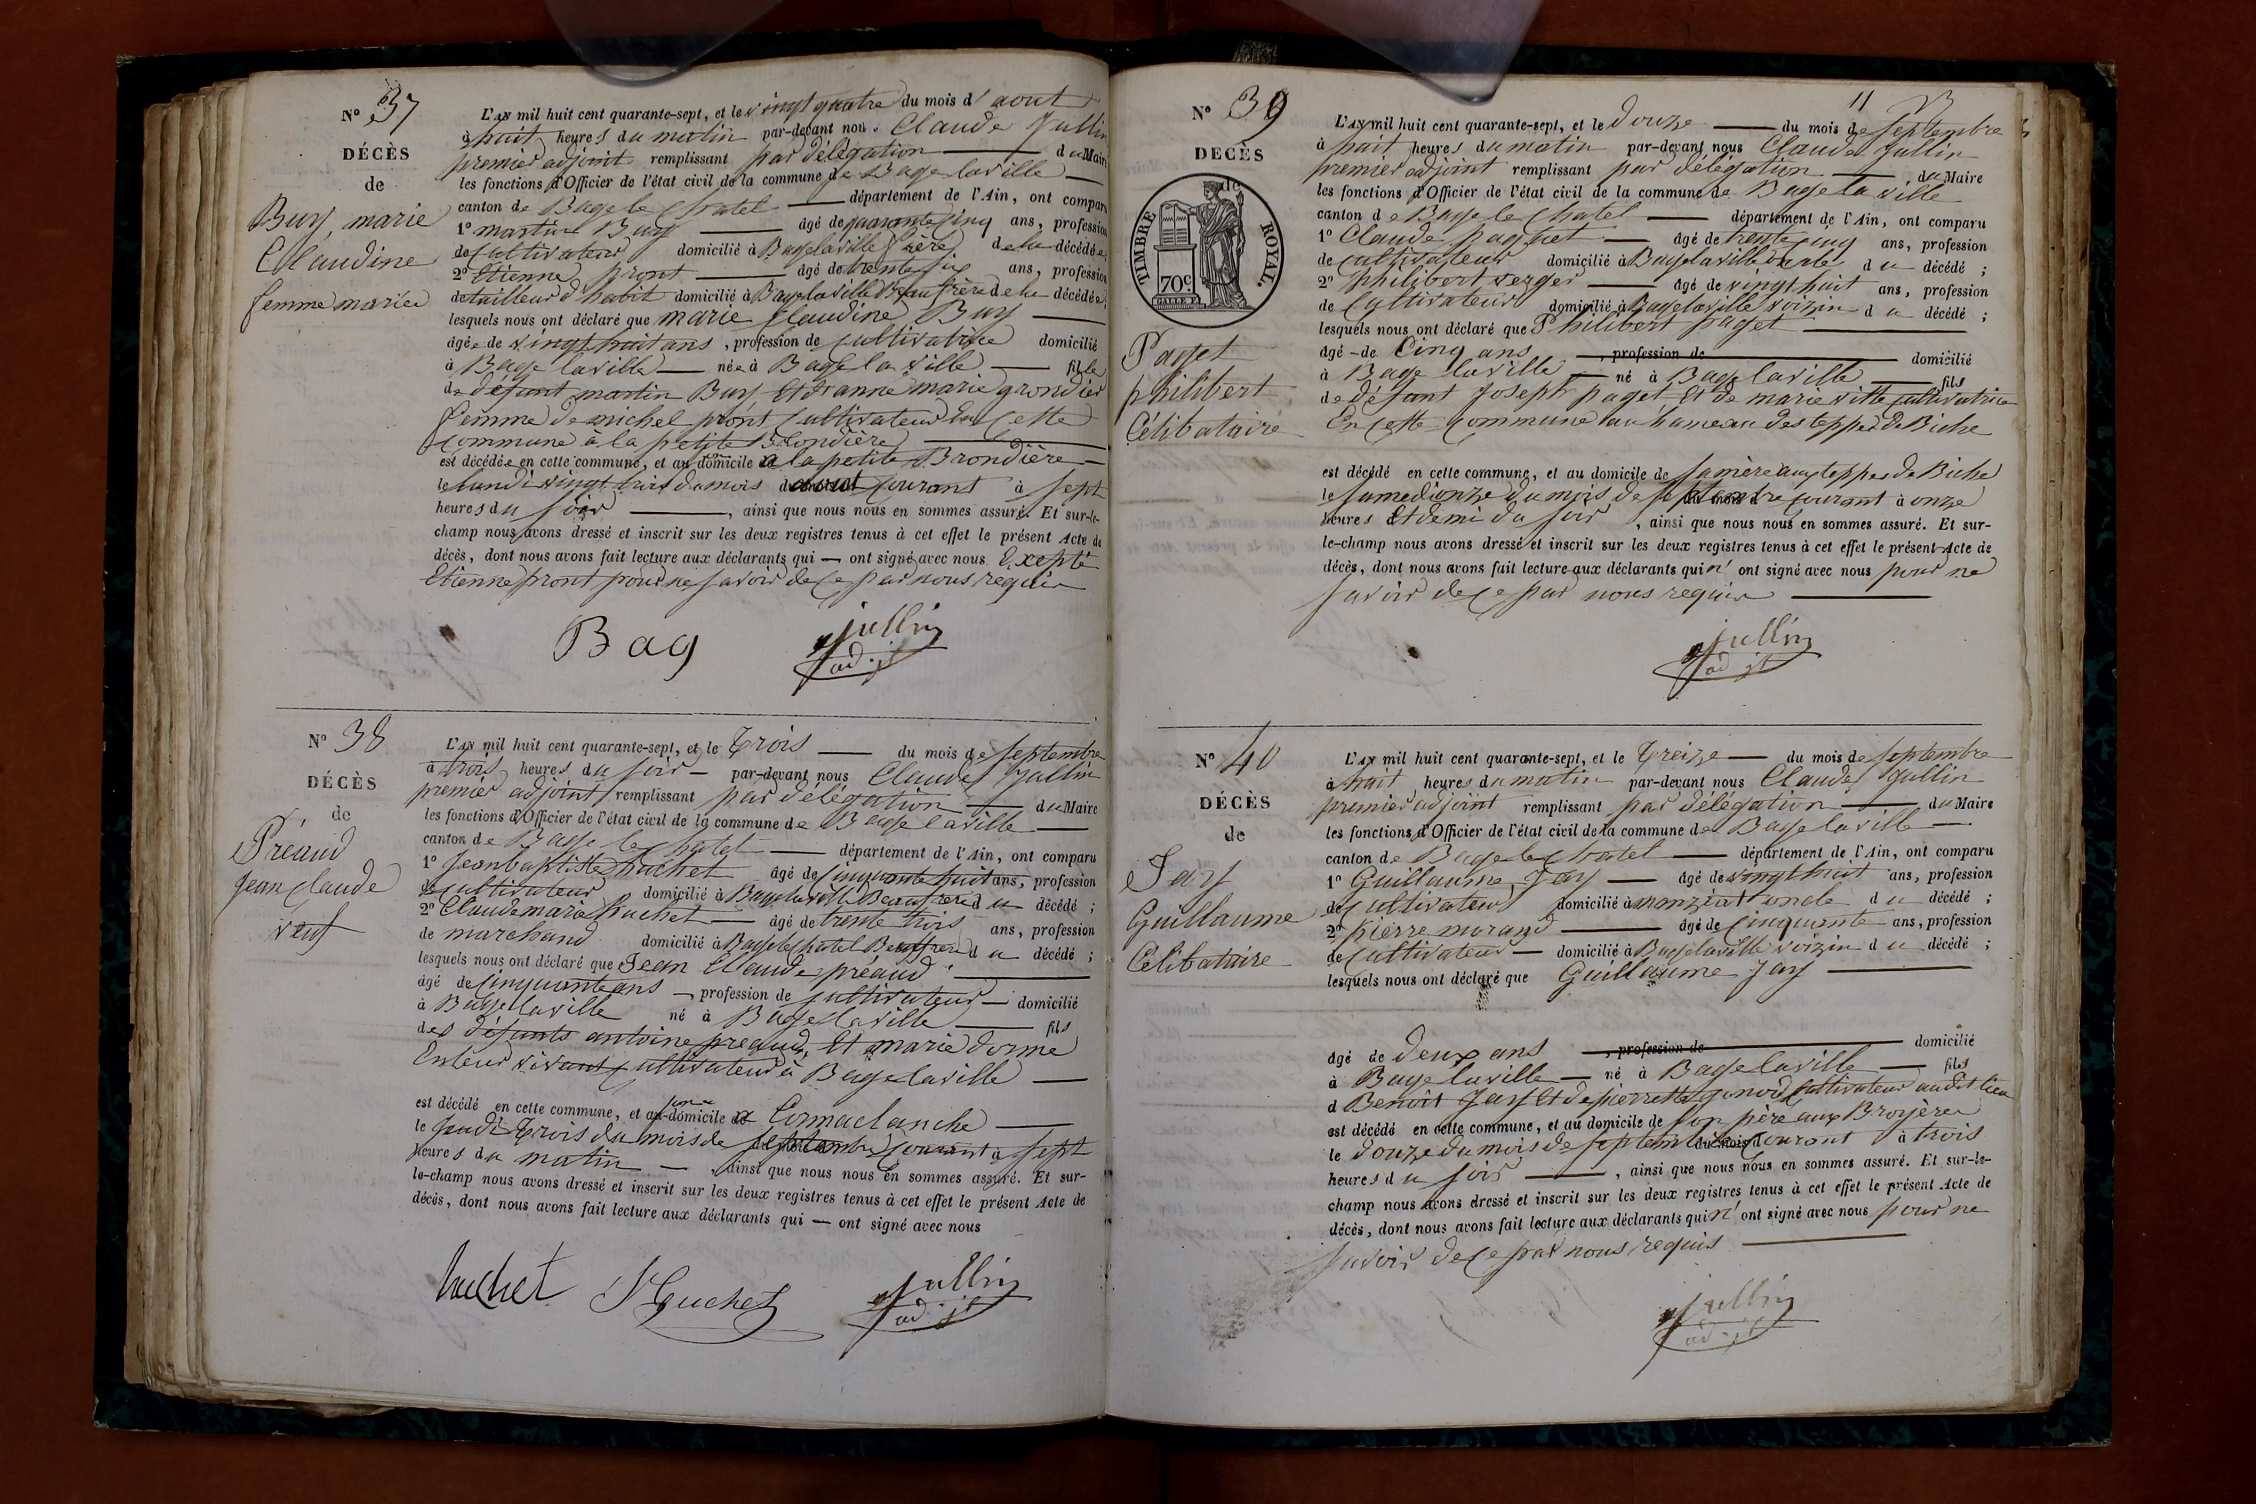 N° 37
DÉCÈS
de
Buy, marie
Claudine
femme mariée
L'AN mil huit cent quarante-sept, et le vingt quatre du mois d'aout
à huit heures du matin par-devant nous Claude Jullin
premier adjoint remplissant par délégation du Maire
les fonctions d'Officier de l'état civil de la commune de Bage laville
canton de Bage le Chatel département de l'Ain, ont comparu
1° martin Buy agé de quarante cinq ans, profession
de Cultivateur domicilié à Bagelaville frère de la décédée
2° Etienne pront agé de trente six ans, profession
de tailleur d'habit domicilié à Bagelaville Beaufrère de la décédée
lesquels nous ont déclaré que marie Claudine Buy
agée de vingt huit ans, profession de Cultivatrice domicilié
à Bage laville née à Bage la ville fille
de défunt martin Buy Et d'anne marie grondier
femme de michel pront Cultivateur En Cette
Commune à la petite Brondière
est décédée en cette commune, et au domicile à la petite Brondière
le lundi vingt trois du mois d'aout courant à sept
heures du soir, ainsi que nous nous en sommes assuré. Et sur-le-
champ nous avons dressé et inscrit sur les deux registres tenus à cet effet le présent Acte de
décès, dont nous avons fait lecture aux déclarants qui — ont signé avec nous Excepté
Etienne pront pour ne savoir de ce par nous requis
Bag Jullin
adjt
N° 38
DÉCÈS
de
Préaud
Jean Claude
veuf
L'AN mil huit cent quarante-sept, et le Trois du mois de septembre
à trois heures du soir par-devant nous Claude Jullin
premier adjoint remplissant par délégation du Maire
les fonctions d'Officier de l'état civil de la commune de Bage laville
canton de Bage le Chatel département de l'Ain, ont comparu
1° Jean baptiste huchet agé de Cinquante huit ans, profession
de Cultivateur domicilié à Bagelaville Beaufrère du décédé ;
2° Claude marie huchet agé de trente trois ans, profession
de marchand domicilié à Bagelechatel Beaufrère du décédé ;
lesquels nous ont déclaré que Jean Claude préaud
agé de Cinquante ans, profession de Cultivateur domicilié
à Bage laville né à Bage laville fils
des défunts antoine preaud, Et marie dorme
En leur vivant Cultivateur à Bage laville
est décédé en cette commune, et au domicile
le jeudi Trois du mois de septembre courant à sept
heures du matin, ainsi que nous nous en sommes assuré. Et sur-
le-champ nous avons dressé et inscrit sur les deux registres tenus à cet effet le présent Acte de
décès, dont nous avons fait lecture aux déclarants qui — ont signé avec nous
huchet Huchet Jullin
adjt
11
N° 39
DECÈS
de
TIMBRE ROYAL.
70c
Paget
philibert
Célibataire
L'AN mil huit cent quarante-sept, et le Douze du mois de septembre
à huit heures du matin par-devant nous Claude Jullin
premier adjoint remplissant par délégation du Maire
les fonctions d'Officier de l'état civil de la commune de Bage la ville
canton de Bage le Chatel département de l'Ain, ont comparu
1° Claude paget agé de trente cinq ans, profession
de Cultivateur domicilié à Bagelaville oncle du décédé ;
2° philibert verger agé de vingt huit ans, profession
de Cultivateur domicilié à Bagelaville voizin du décédé ;
lesquels nous ont déclaré que Philibert paget
agé de Cinq ans, profession de domicilié
à Bage laville né à Bage laville fils
de défunt Joseph paget Et de marie vitte Cultivatrice
En Cette Commune au hameau des teppes de Biche
est décédé en cette commune, et au domicile de sa mère aux teppes de Biche
le samedi onze du mois de septembre courant à onze
heures Et demi du soir, ainsi que nous nous en sommes assuré. Et sur-
le-champ nous avons dressé et inscrit sur les deux registres tenus à cet effet le présent Acte de
décès, dont nous avons fait lecture aux déclarants qui n'ont signé avec nous pour ne
savoir de ce par nous requis
Jullin
adjt
N° 40
DÉCÈS
de
Jay
Guillaume
Célibataire
L'AN mil huit cent quarante-sept, et le Treize du mois de septembre
à huit heures du matin par-devant nous Claude Jullin
premier adjoint remplissant par délégation du Maire
les fonctions d'Officier de l'état civil de la commune de Bage laville
canton de Bage le Chatel département de l'Ain, ont comparu
1° Guillaume Jay agé de vingt huit ans, profession
de Cultivateur domicilié à manziat oncle du décédé ;
2° pierre morand agé de Cinquante ans, profession
de Cultivateur domicilié à Bagelaville voizin du décédé ;
lesquels nous ont déclaré que Guillaume Jay
agé de deux ans, profession de domicilié
à Bage laville né à Bage laville fils
d Benoit Jay Et de pierrette gonod Cultivateur audit lieu
est décédé en cette commune, et au domicile de son père aux Broyères
le douze du mois de septembre courant à trois
heures du soir, ainsi que nous nous en sommes assuré. Et sur-le-
champ nous avons dressé et inscrit sur les deux registres tenus à cet effet le présent Acte de
décès, dont nous avons fait lecture aux déclarants qui n'ont signé avec nous pour ne
savoir de ce par nous requis
Jullin
adjt